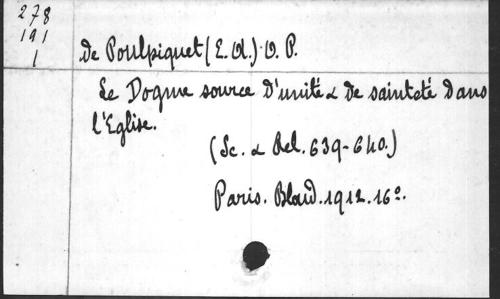 278
191
1
de Poulpiquet (E. A.) O. P.
Le Dogme source d'unité & de sainteté dans
l'Eglise.
(Sc. & Rel. 639-640.)
Paris. Bloud. 1912. 16º.